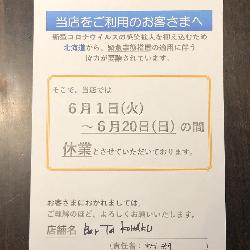 当店をご利用のお客さまへ
新型コロナウイルスの感染拡大を抑え込むため
北海道から、緊急事態措置の適用に伴う
協力が要請されています。
そこで、当店では
6月1日(火)
～6月20日(日)の間
休業とさせていただいております。
お客さまにおかれましては、
ご理解のほど、よろしくお願いいたします。
店舗名 Bar Ta
(責任者: